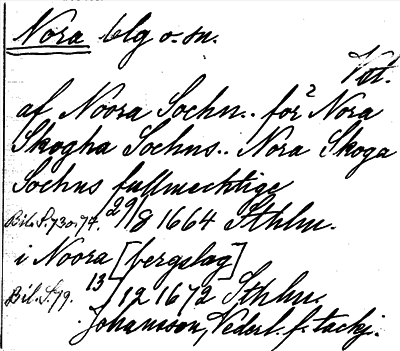 Nora blg o. sn.
Vstm.
af Noora Sochn.. för 2 Nora
Skogha Sochns.. Nora Skoga
Sochns fullmechtige
Bil. S. 730. 74. 29/8 1664 Sthlm.
i Noora [bergslag]
Bil. S. 79. 13/12 1672 Sthlm.
Johansson, Nederl. f. tackj.